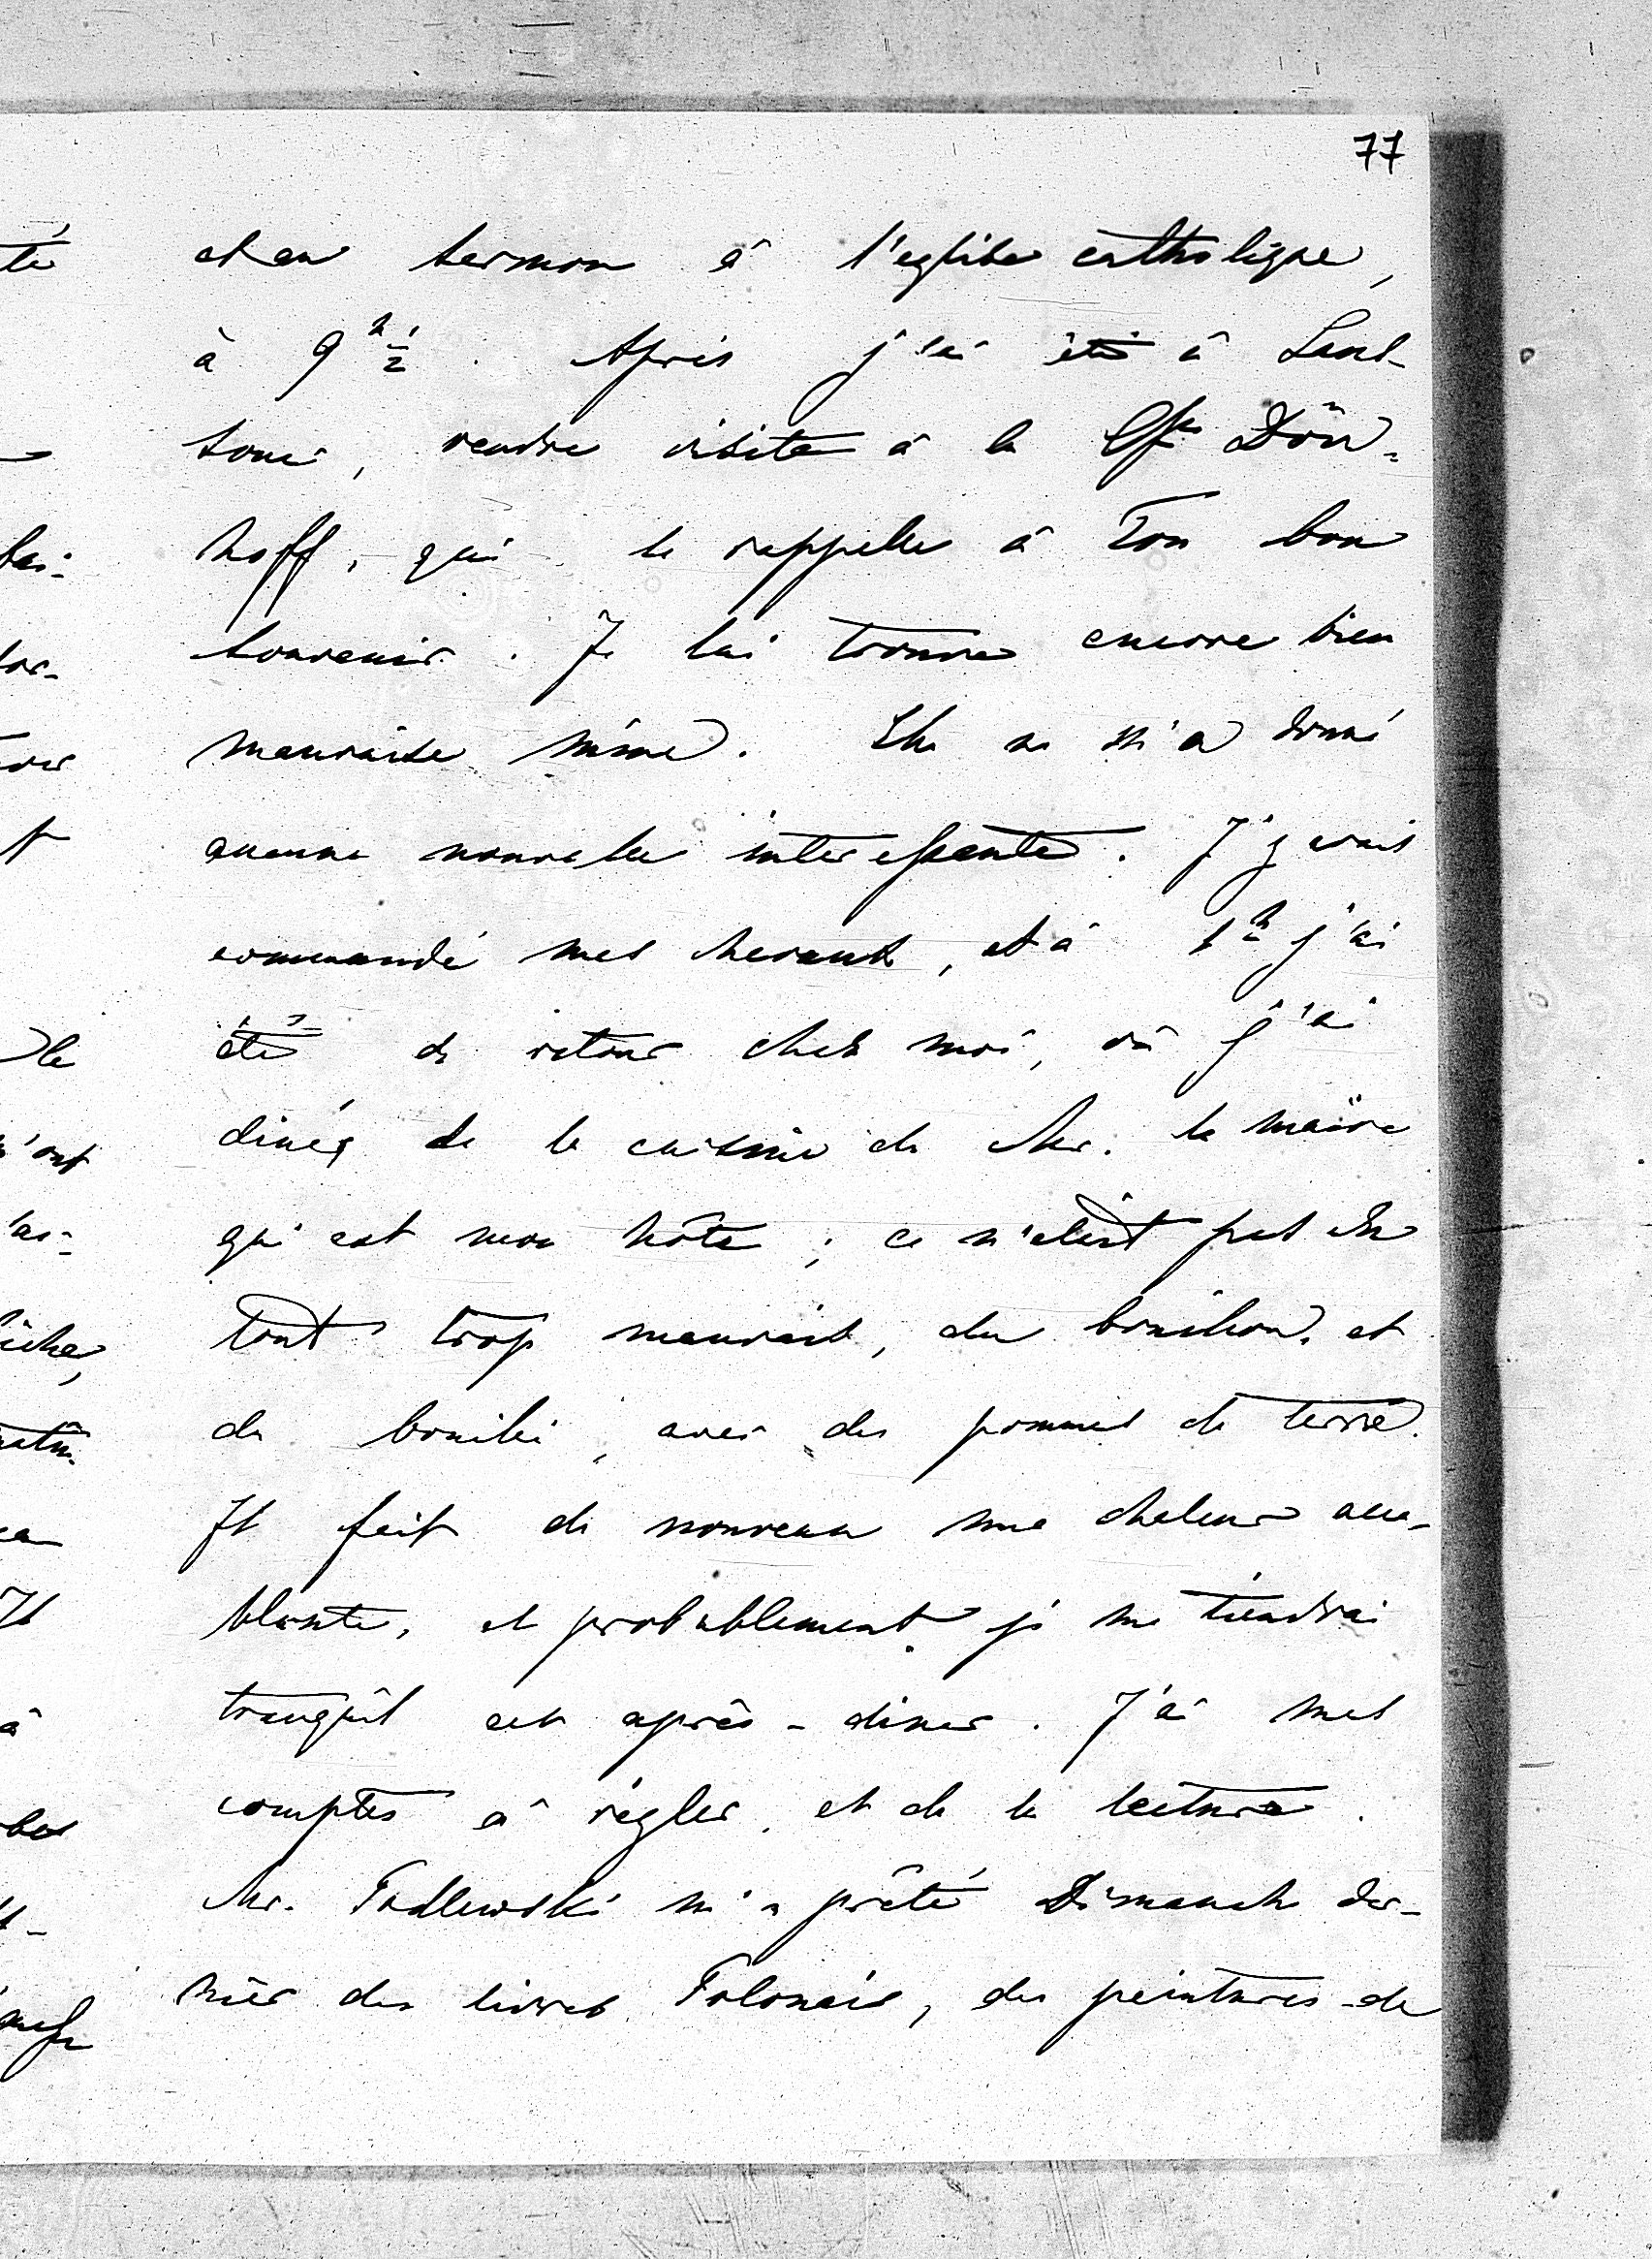 77
et au sermon à l'eglise catholique,
à 9 h ½. Après j'ai été à Sans-
souci, rendre visite à la Csse Dön-
hoff, qui se rappelle à Ton bon
souvenir. Je lui trouve encore bien
mauvaise mine. Elle ne m'a donné
aucune nouvelle interessante. J'y avais
commandé mes chevaux, et à 1 h j'ai
été de retour chez moi, où j'ai
diné de la cuisine de Mr. le maire
qui est mon hôte; ce n'était pas du
tout trop mauvais, du bouillon, et
du bouilli, avec des pommes de terre.
Il fait de nouveau une chaleur acca-
blante, et probablement je me tiendrai
tranquil cet après-diner. J'ai mes
comptes à régler, et de la lecture.
Mr. Podlewski m'a prêté Dimanche der-
nier des livres Polonais, des peintures de